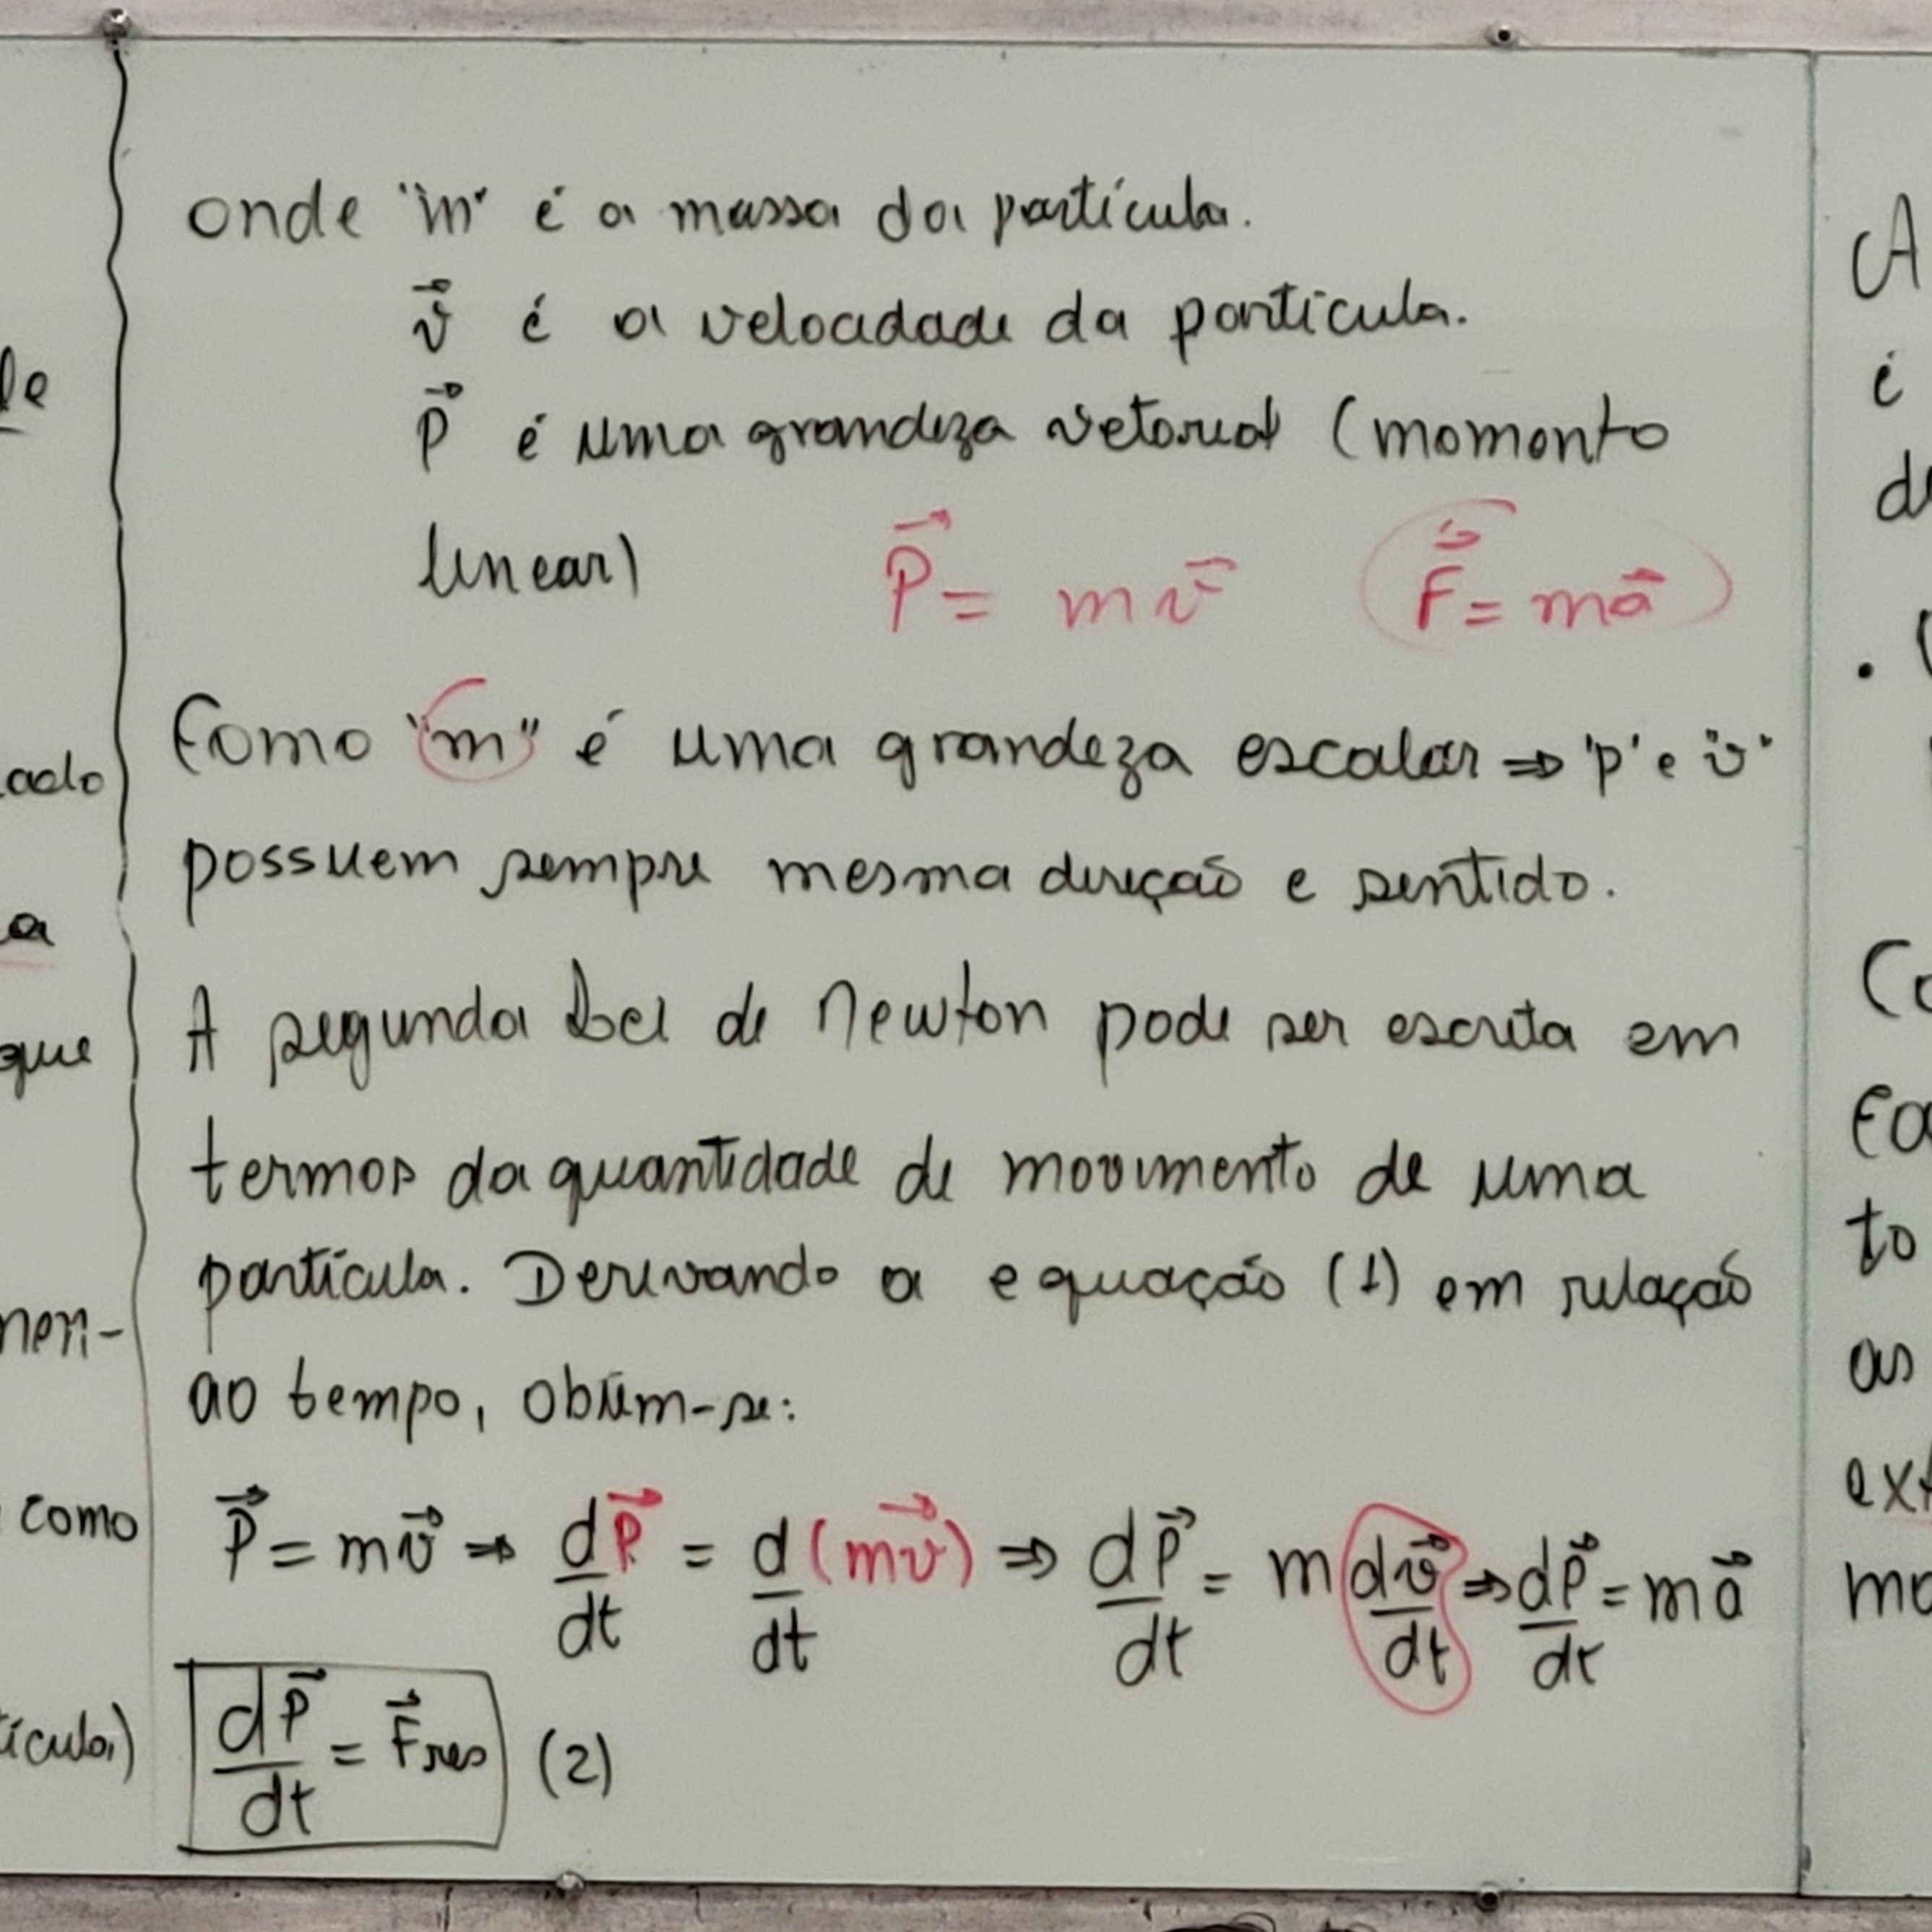 onde "m" é a massa da partícula.
v⃗ é a velocidade da partícula.
P⃗ é uma grandeza vetorial (momento
linear)
P⃗ = mv⃗ F⃗ = ma⃗
Como "m" é uma grandeza escalar ⇒ "p" e "v"
possuem sempre mesma direção e sentido.
A segunda Lei de Newton pode ser escrita em
termos da quantidade de movimento de uma
partícula. Derivando a equação (1) em relação
ao tempo, obtêm-se:
P⃗ = mv⃗ ⇒ dP⃗/dt = d(mv⃗)/dt ⇒ dP⃗/dt = m dv⃗/dt ⇒ dP⃗/dt = ma⃗
dP⃗/dt = F⃗res (2)
que
como
A
é
to
as